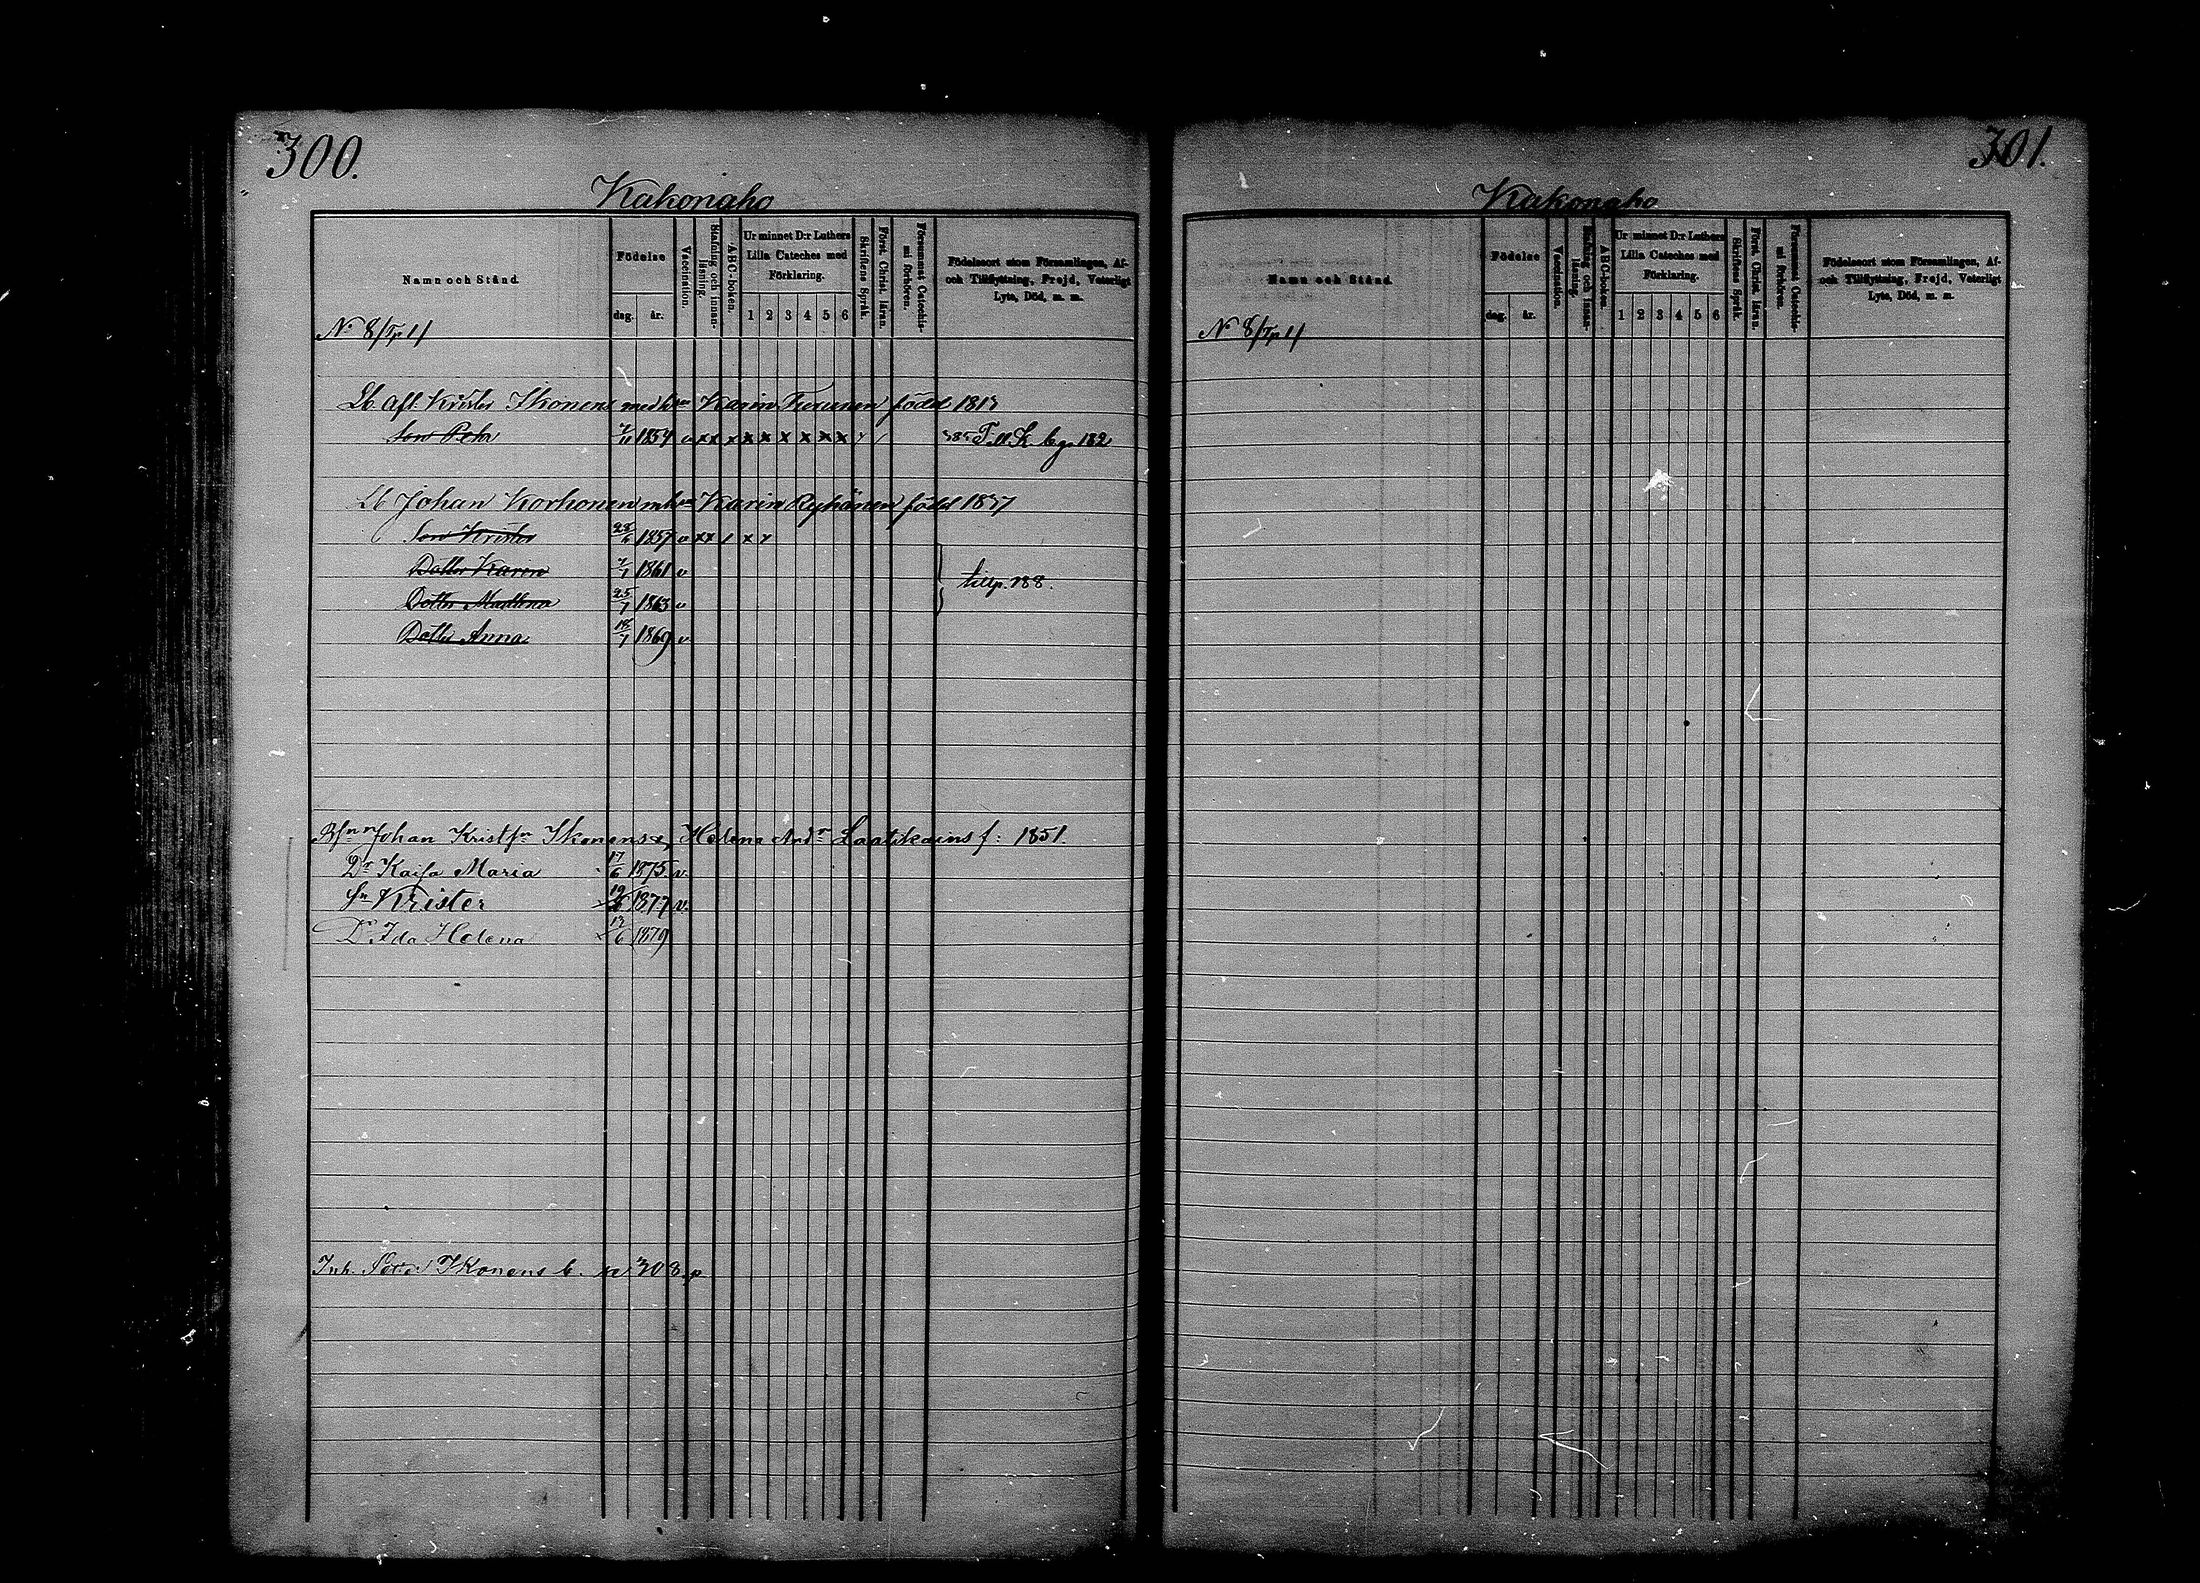 300.
Kakonaho
Namn och Stånd.
Födelse
dag. år.
Vaccination.
Stafning och innanläsning.
ABC-boken.
Ur minnet D:r Luthers Lilla Cateches med Förklaring.
1 2 3 4 5 6
Skriftens Språk.
Först. Christ. läran.
Försummat Catechismi förhören.
Födelseort utom Församlingen, Af- och Tillflyttning, Frejd, Veterligt Lyte, Död, m. m.
No 8/Tp 1/
Lb afl. Krister Ikonens med h:u Karin Turunen född 1813
Son Pehr 1854 v x x x x x x x x x Till K. bg. 182
Lb Johan Korhonen m h:u Karin Ryhänen född 1837
Son Krister 28/6 1857 v x x / x x
Dotter Karin 1861 v
tillp. 188.
Dotter Madlena 25/7 1863 v
Dotter Anna 18/7 1869 v
Johan Krist.sn Ikonens & Helena And:r Laatikains f: 1851.
Dr Kaisa Maria 17/6 1875. v.
Sn Krister 19/6 1877 v.
Dr Ida Helena 12/6 1879
Inh. Ikonens b. 308. p
301.
Kakonaho
Namn och Stånd.
Födelse
dag. år.
Vaccination.
Stafning och innanläsning.
ABC-boken.
Ur minnet D:r Luthers Lilla Cateches med Förklaring.
1 2 3 4 5 6
Skriftens Språk.
Först. Christ. läran.
Försummat Catechismi förhören.
Födelseort utom Församlingen, Af- och Tillflyttning, Frejd, Veterligt Lyte, Död, m. m.
No 8/Tp 1/